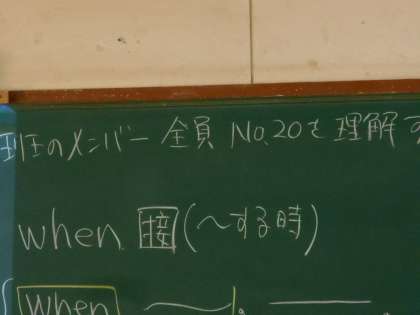 班のメンバー 全員 No.20を理解す
when 接(〜する時)
when 〜,